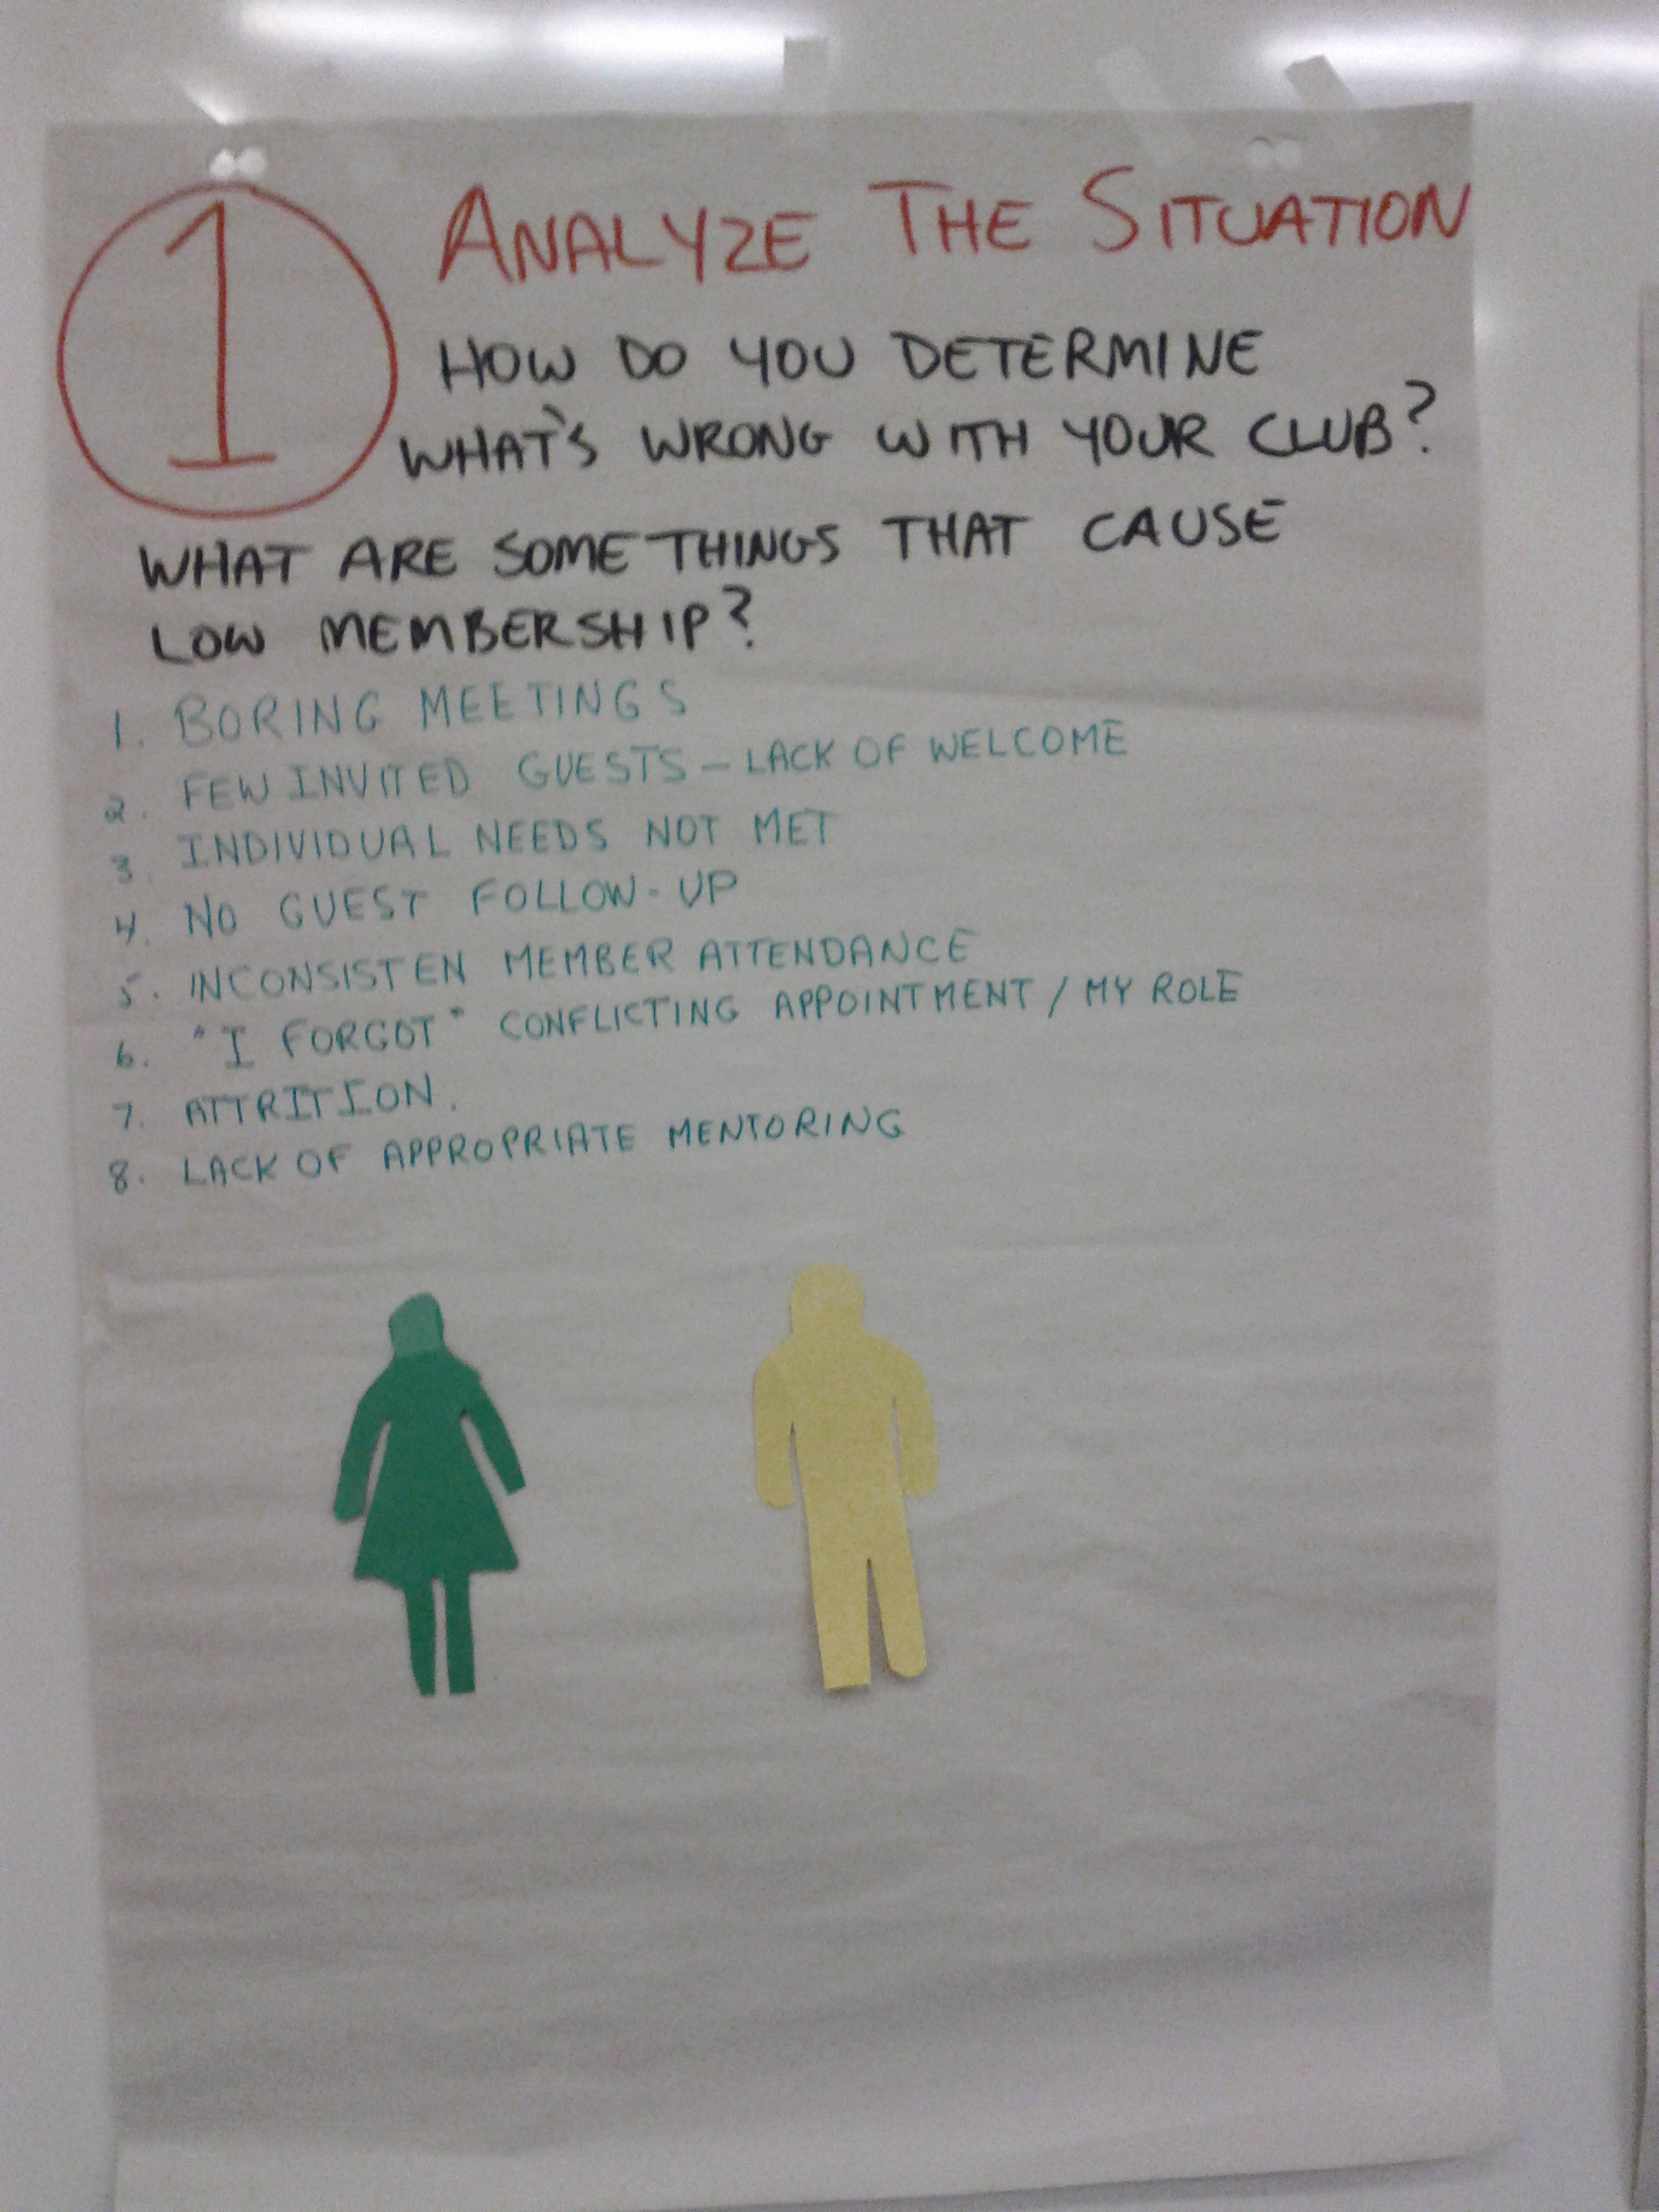 1 ANALYZE THE SITUATION
HOW DO YOU DETERMINE
WHAT'S WRONG WITH YOUR CLUB?
WHAT ARE SOME THINGS THAT CAUSE
LOW MEMBERSHIP?
1. BORING MEETINGS
2. FEW INVITED GUESTS - LACK OF WELCOME
3. INDIVIDUAL NEEDS NOT MET
4. NO GUEST FOLLOW-UP
5. INCONSISTEN MEMBER ATTENDANCE
6. "I FORGOT" CONFLICTING APPOINTMENT / MY ROLE
7. ATTRITION.
8. LACK OF APPROPRIATE MENTORING